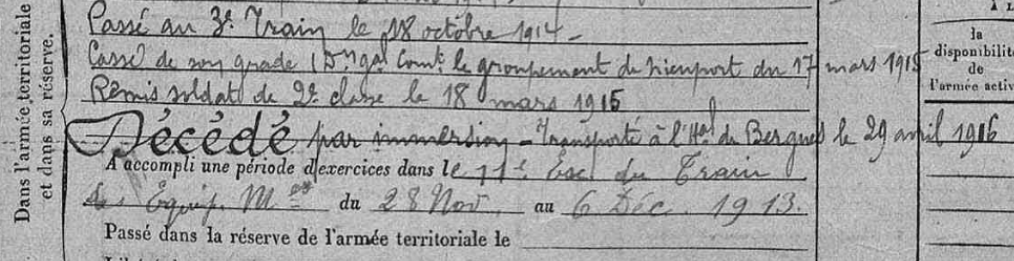 Passé au 3e Train le 18 octobre 1914 -
Cassé de son grade (Don gal Comt le groupement de Nieuport du 17 mars 1915
Remis soldat de 2e classe le 18 mars 1915
Décédé par immersion - Transporté à l'Hal de Bergues le 29 avril 1916
A accompli une période d'exercices dans le 11e Esc. du Train
Equip. Mres du 28 Nov. au 6 Déc. 1913.
Passé dans la réserve de l'armée territoriale le
Dans l'armée territoriale
et dans sa réserve.
la
disponibilité
de
l'armée activ